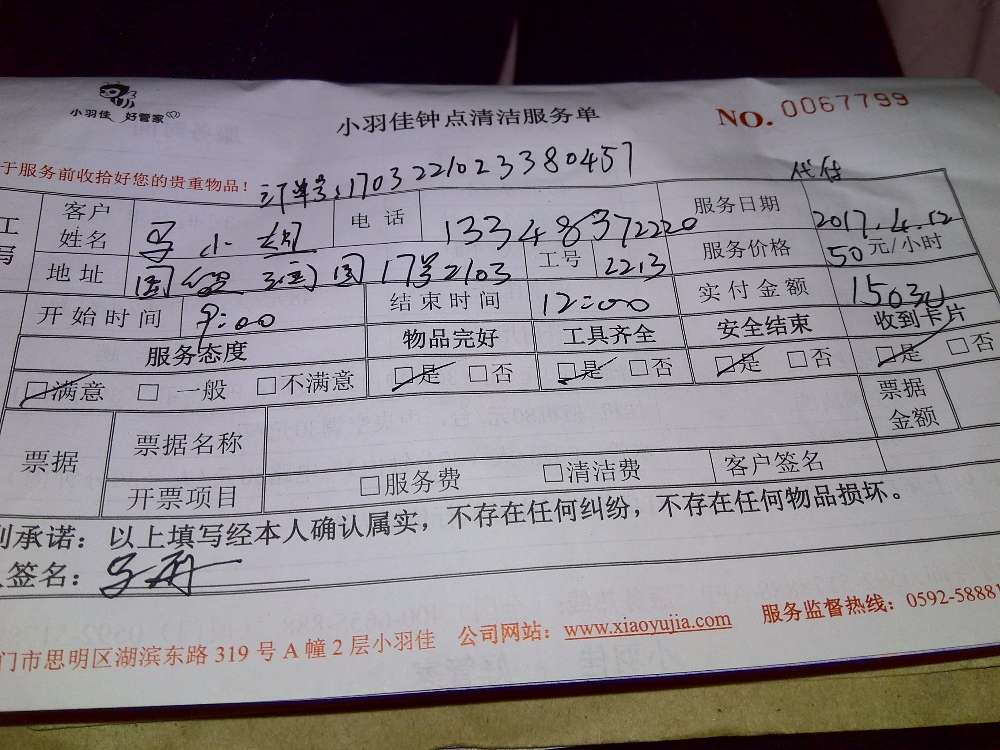 小羽佳 好管家
小羽佳钟点清洁服务单
NO. 0067799
于服务前收拾好您的贵重物品！
订单号:1703221023380457
代付
工 客户姓名 马小 电话 13348372220 服务日期 2017.4.12
写 地址 国 17号2103 工号 2213 服务价格 50元/小时
开始时间 9:00 结束时间 12:00 实付金额 150元
服务态度 物品完好 工具齐全 安全结束 收到卡片
□满意 □一般 □不满意 □是 □否 □是 □否 □是 □否 □是 □否
票据 票据名称 票据金额
开票项目 □服务费 □清洁费 客户签名
承诺：以上填写经本人确认属实，不存在任何纠纷，不存在任何物品损坏。
签名：
门市思明区湖滨东路 319 号 A 幢 2 层小羽佳 公司网站：www.xiaoyujia.com 服务监督热线：0592-58881